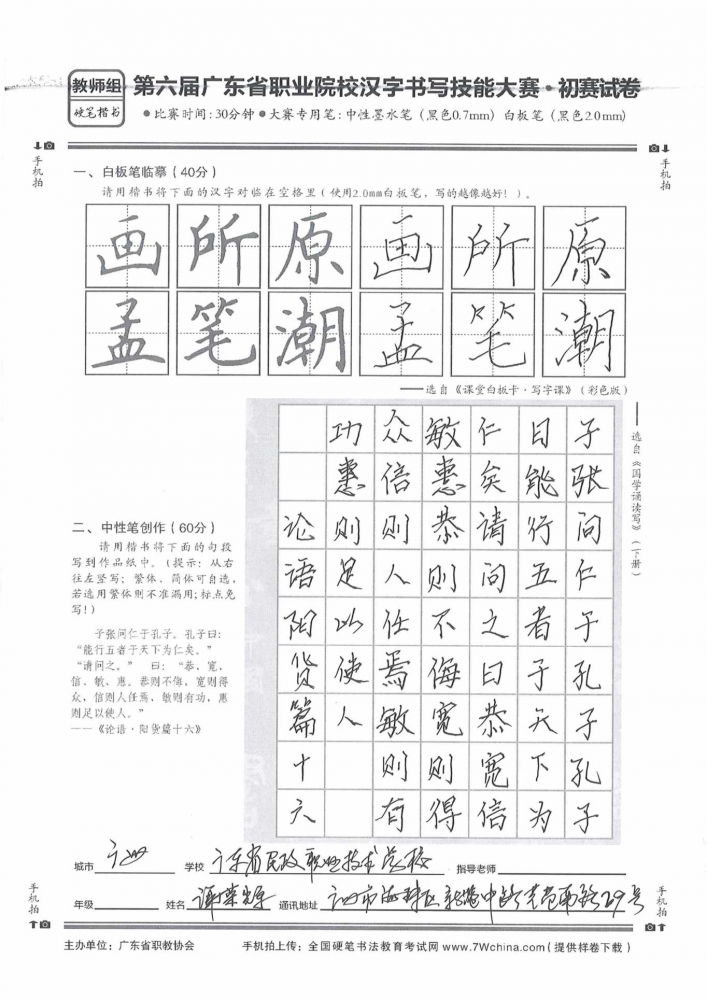 教师组
硬笔楷书
第六届广东省职业院校汉字书写技能大赛·初赛试卷
●比赛时间:30分钟●大赛专用笔:中性墨水笔(黑色0.7mm) 白板笔(黑色2.0mm)
手机拍
手机拍
一、白板笔临摹(40分)
请用楷书将下面的汉字对临在空格里(使用2.0mm白板笔,写的越像越好!)。
画所原画所原
孟笔潮孟笔潮
——选自《课堂白板卡·写字课》(彩色版)
——选自《国学诵读写》(下册)
子张问仁于孔子孔子
曰能行五者于天下为
仁矣请问之曰恭宽信
敏惠恭则不侮宽则得
众信则人任焉敏则有
功惠则足以使人
论语阳货篇十六
二、中性笔创作(60分)
请用楷书将下面的句段
写到作品纸中。(提示:从右
往左竖写;繁体、简体可自选,
若选用繁体则不准漏用;标点免
写!)
子张问仁于孔子。孔子曰:
“能行五者于天下为仁矣。”
“请问之。” 曰:“恭,宽,
信,敏,惠。恭则不侮,宽则得
众,信则人任焉,敏则有功,惠
则足以使人。”
——《论语·阳货篇十六》
城市 广州 学校 广东省民政职业技术学校 指导老师
年级 姓名 谭荣 通讯地址 广州市 29号
手机拍
手机拍
主办单位:广东省职教协会 手机拍上传:全国硬笔书法教育考试网 www.7Wchina.com(提供样卷下载)